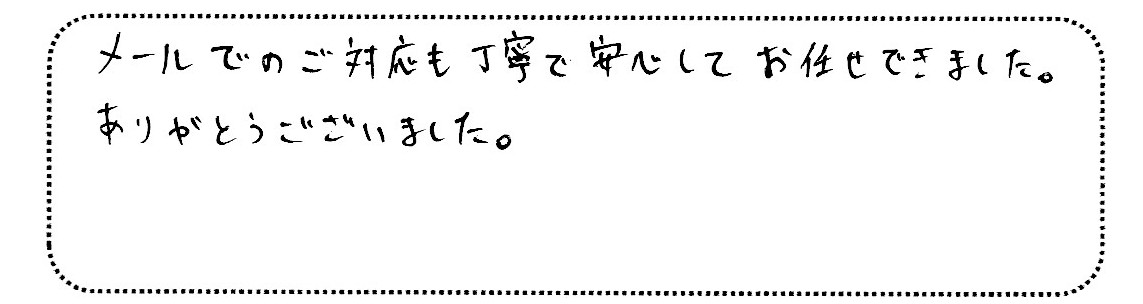 メールでのご対応も丁寧で安心してお任せできました。
ありがとうございました。